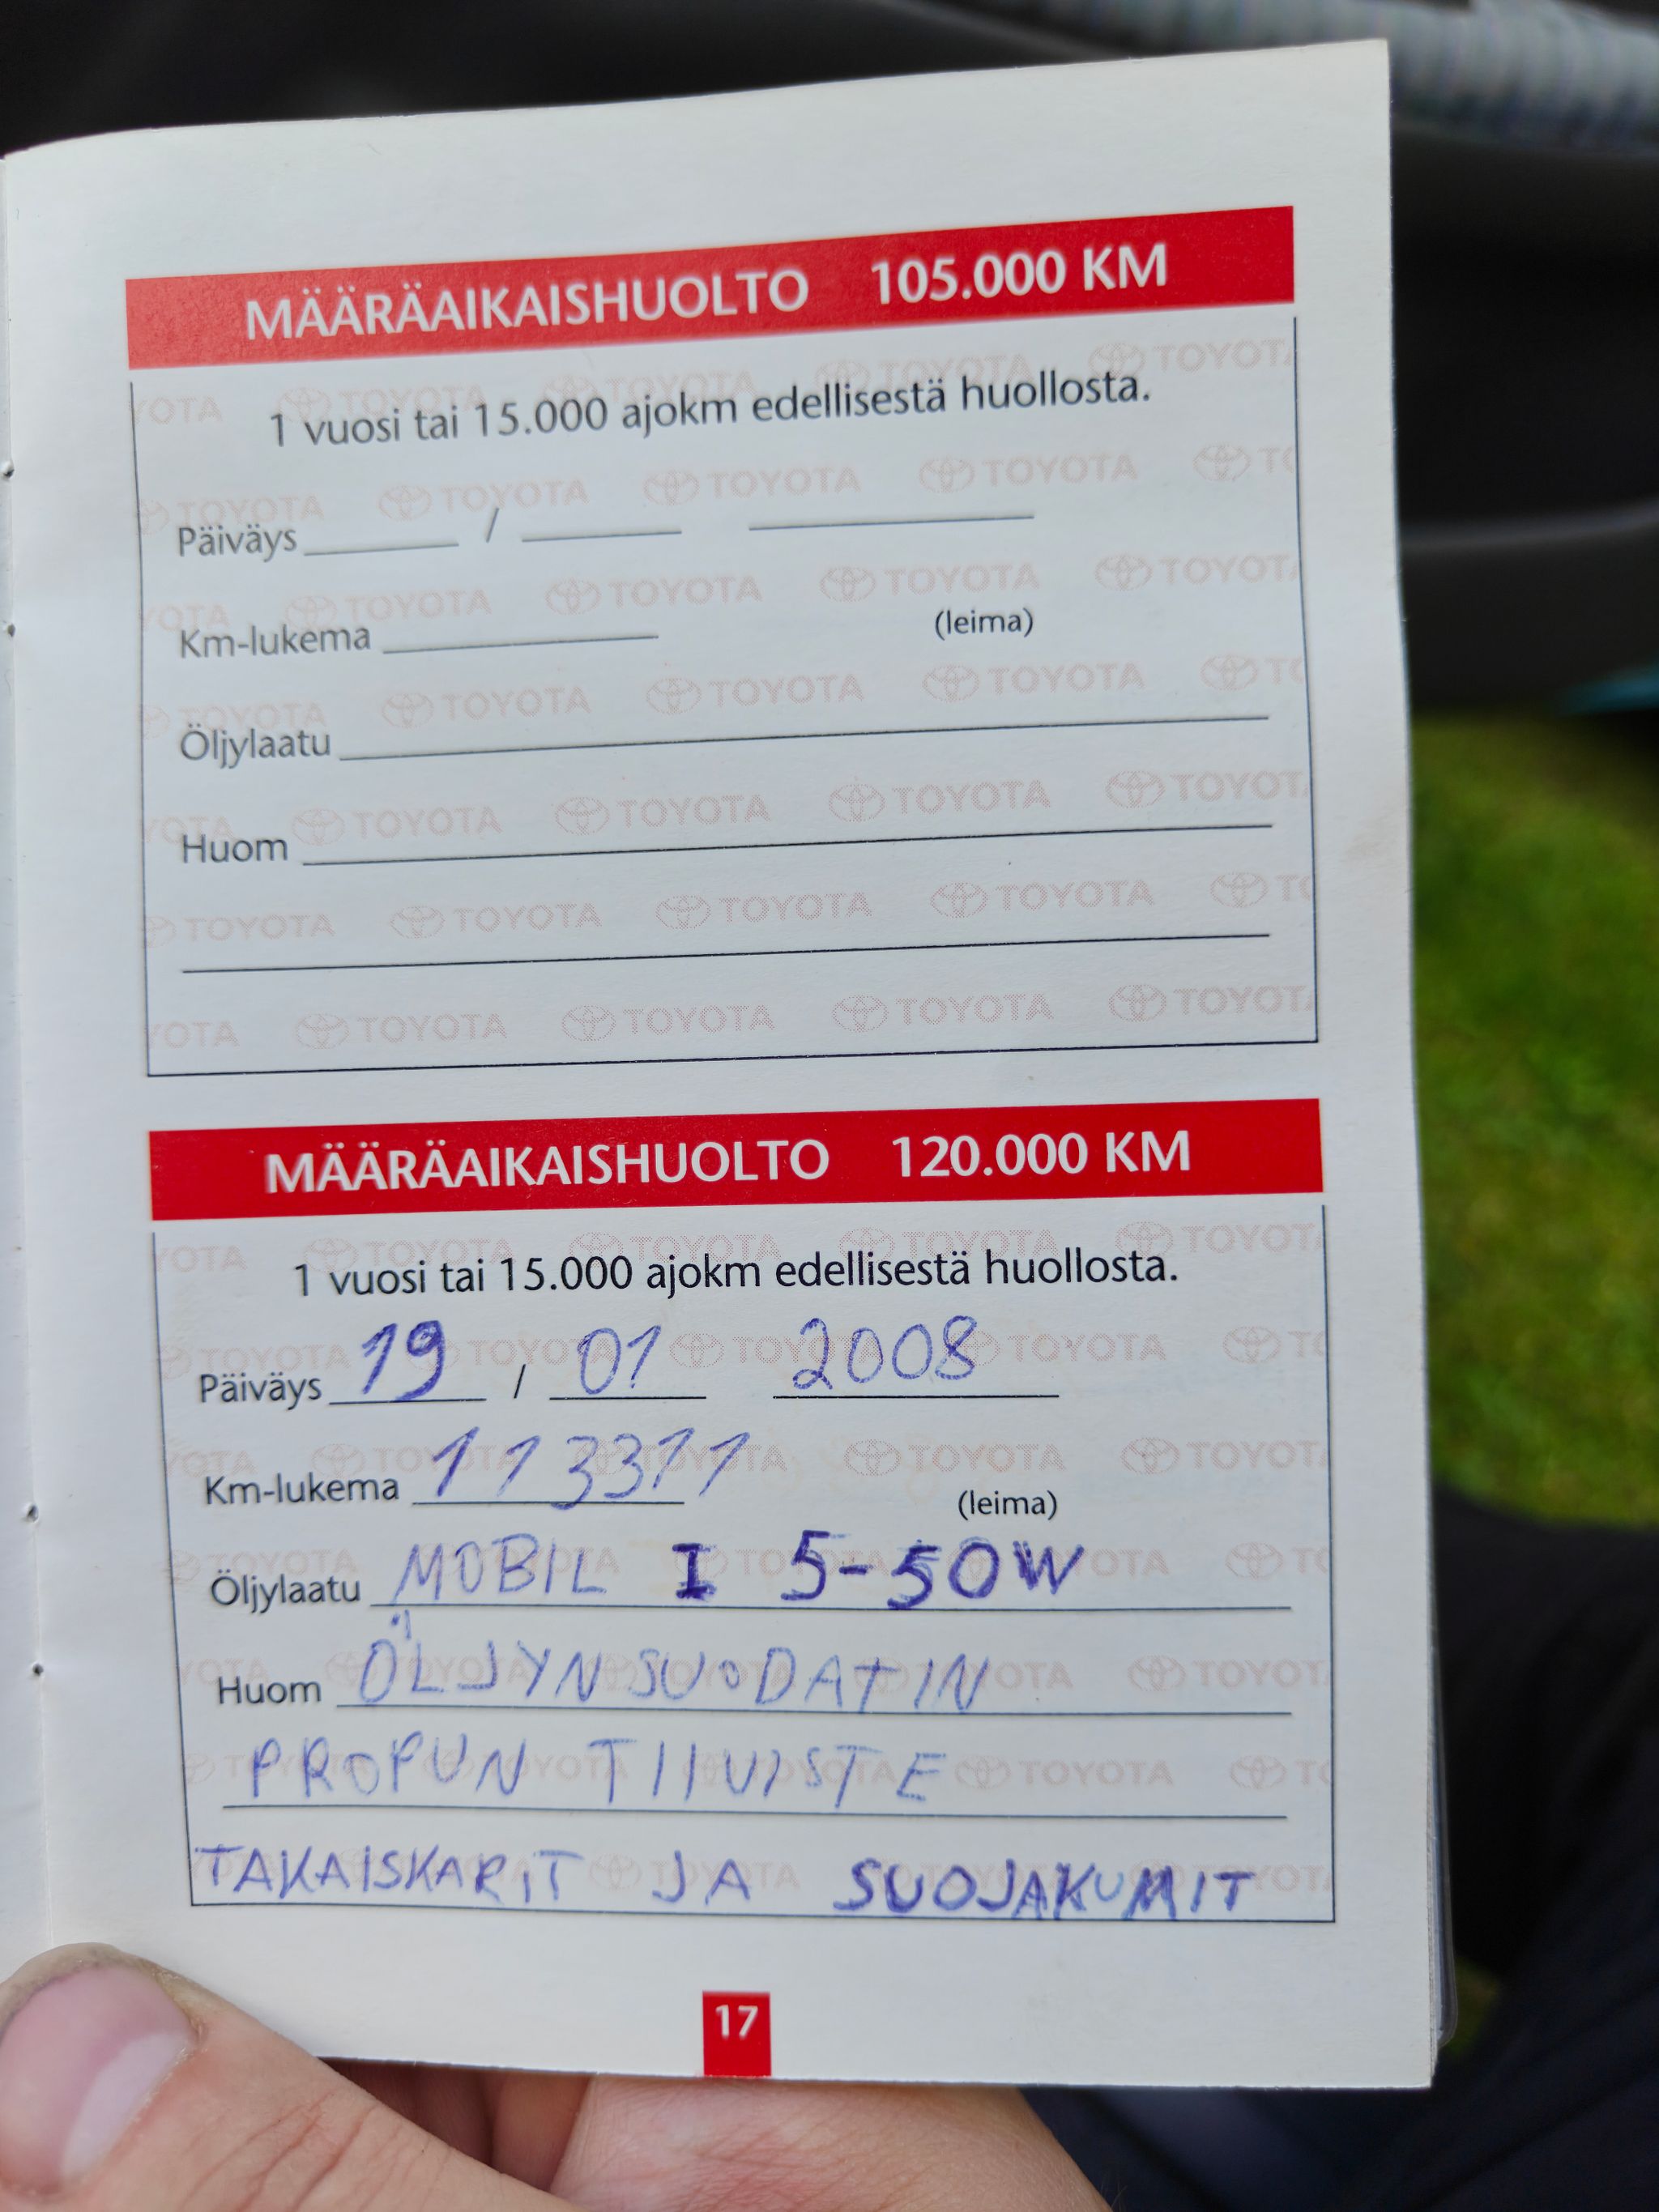 MÄÄRÄAIKAISHUOLTO 105.000 KM
1 vuosi tai 15.000 ajokm edellisestä huollosta.
Päiväys / 
Km-lukema (leima)
Öljylaatu
Huom
MÄÄRÄAIKAISHUOLTO 120.000 KM
1 vuosi tai 15.000 ajokm edellisestä huollosta.
Päiväys 19 / 01 2008
Km-lukema 113311 (leima)
Öljylaatu MOBIL I 5-50W
Huom ÖLJYNSUODATIN
PROPUN TIIVISTE
TAKAISKARIT JA SUOJAKUMIT
17